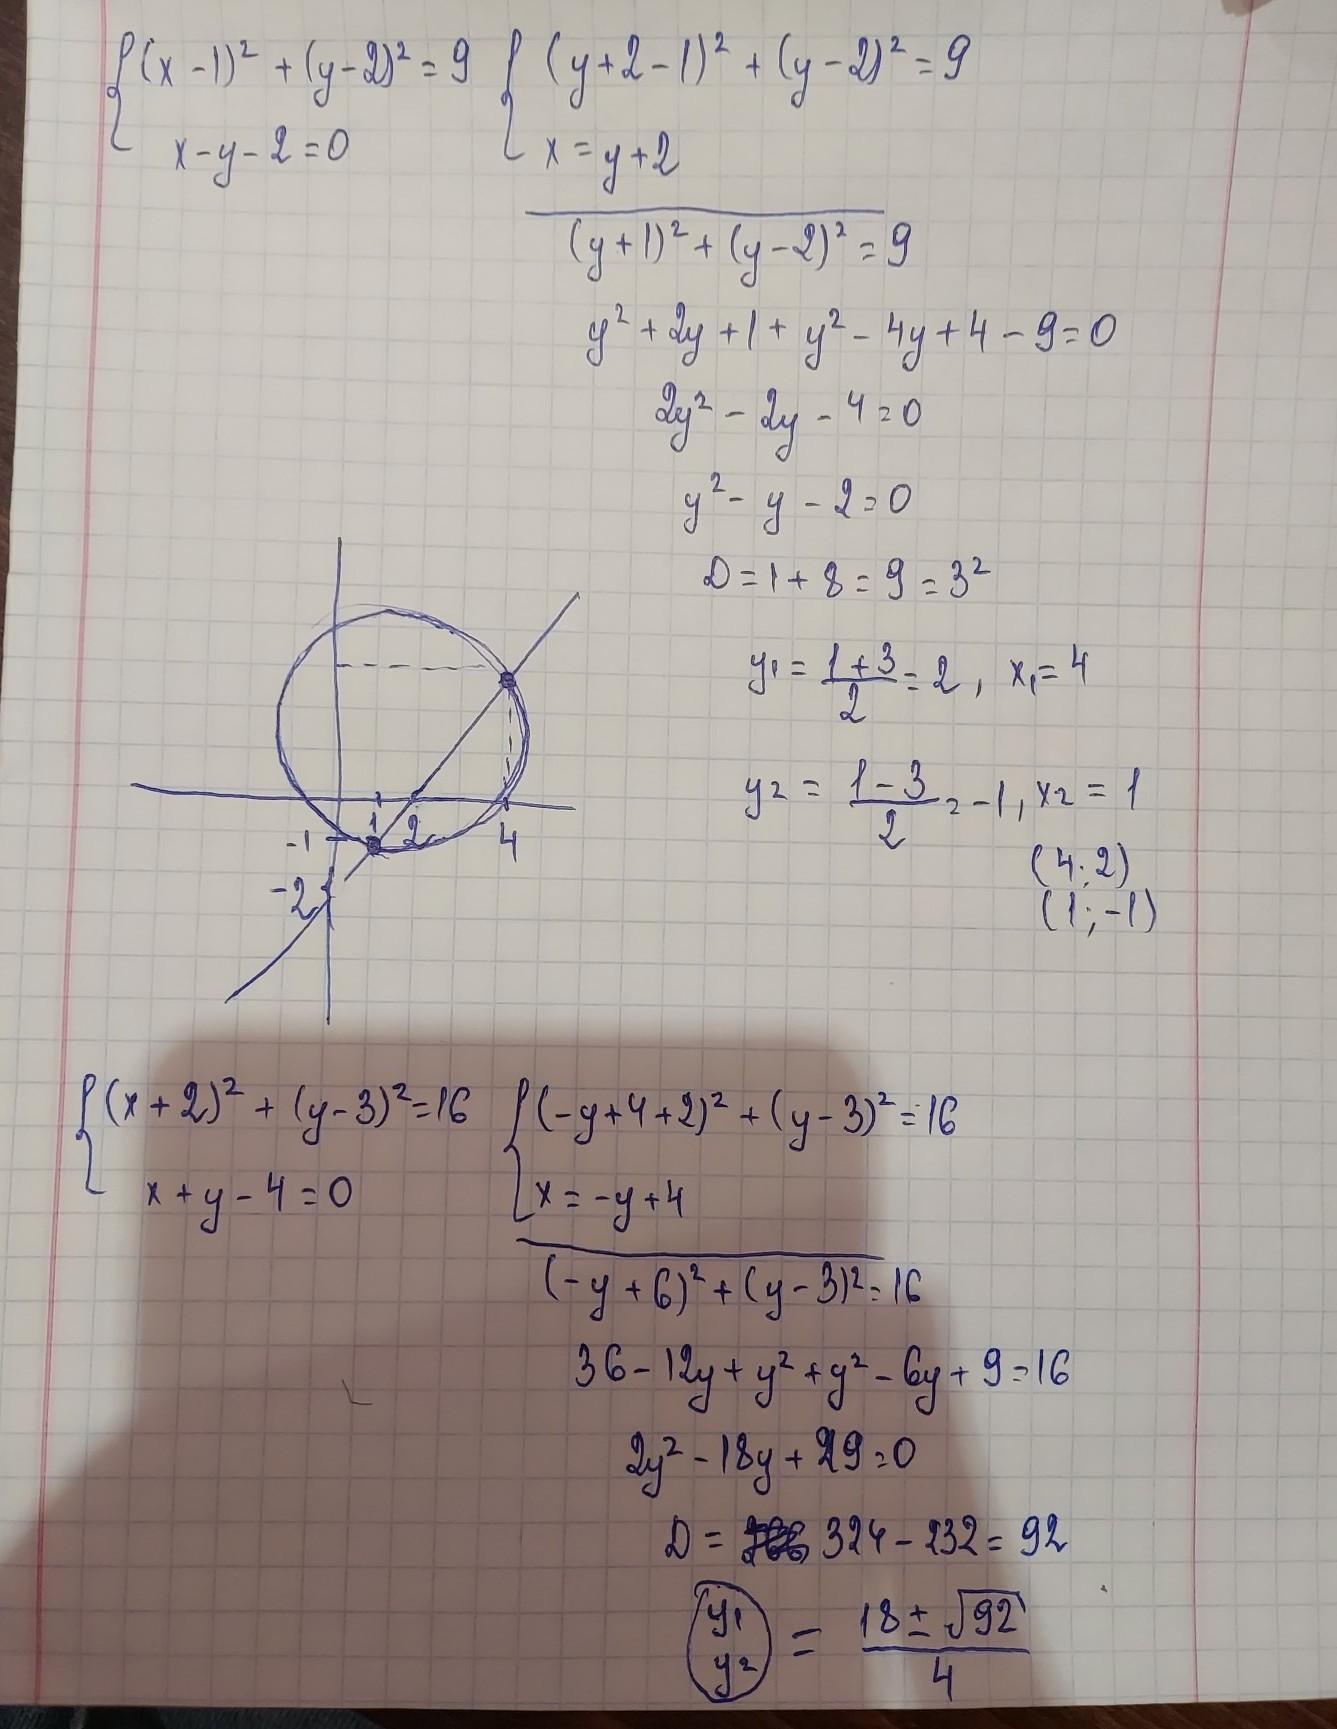 {(x-1)² + (y-2)² = 9
x-y-2=0
{(y+2-1)² + (y-2)² = 9
x = y+2
(y+1)² + (y-2)² = 9
y² + 2y + 1 + y² - 4y + 4 - 9 = 0
2y² - 2y - 4 = 0
y² - y - 2 = 0
D = 1 + 8 = 9 = 3²
y₁ = (1+3)/2 = 2, x₁ = 4
y₂ = (1-3)/2 = -1, x₂ = 1
(4; 2)
(1; -1)
1 2 4
-1
-2
{(x+2)² + (y-3)² = 16
x+y-4=0
{(-y+4+2)² + (y-3)² = 16
x = -y+4
(-y+6)² + (y-3)² = 16
36 - 12y + y² + y² - 6y + 9 = 16
2y² - 18y + 29 = 0
D = 324 - 232 = 92
y₁
y₂ = (18 ± √92)/4